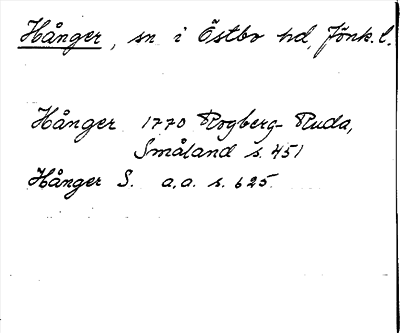 Hånger, sn i Östbo hd, Jönk. l.
Hånger 1770 Rogberg-Ruda,
Småland s. 451
Hånger S. a.a. s. 625.